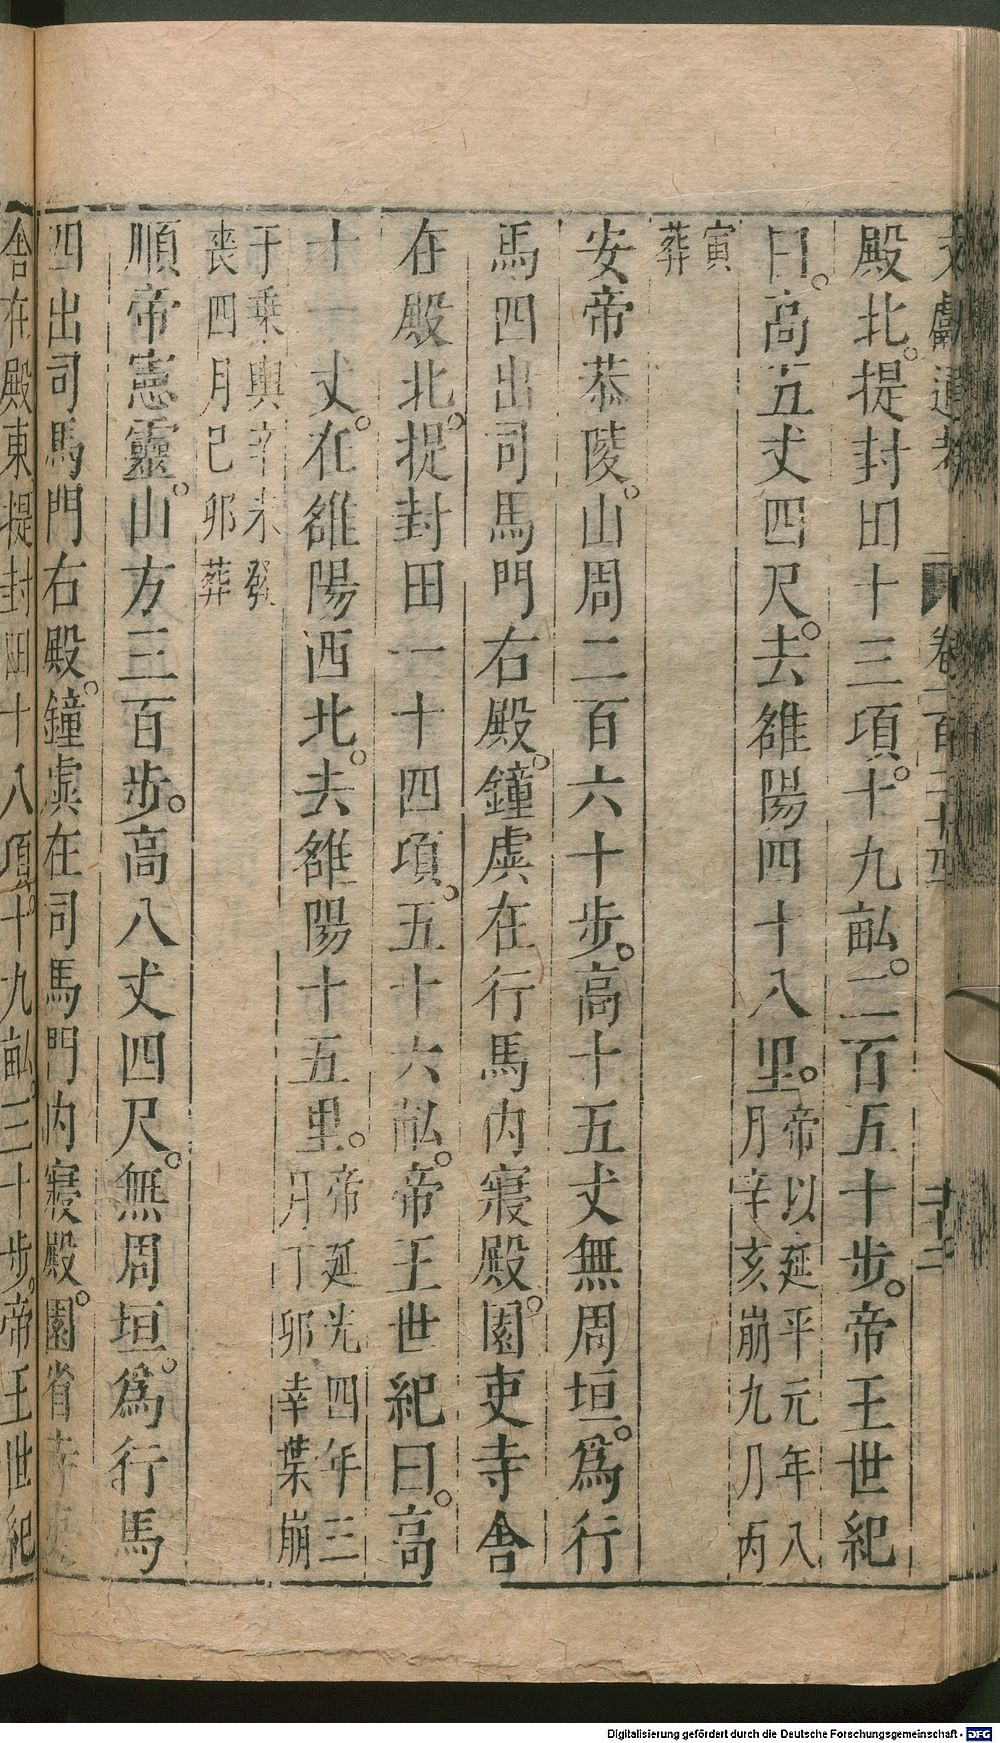 文獻通考 卷一百二十四 十二
殿北。提封田十三項。十九畆。二百五十步。帝王世紀
曰。高五丈四尺。去雒陽四十八里。帝以延平元年八
月辛亥崩九月丙
寅
葬
安帝恭陵。山周二百六十步。高十五丈無周垣。爲行
馬四出司馬門右殿。鐘虡在行馬内寢殿。園吏寺舎
在殿北。提封田一十四項。五十六畆。帝王世紀曰。高
十一丈。在雒陽西北。去雒陽十五里。帝延光四年三
月丁卯幸葉崩
于乗輿辛未發
喪四月己卯葬
順帝憲靈。山方三百步。高八丈四尺。無周垣。爲行馬
四出司馬門右殿。鐘虡在司馬門内寢殿。園省寺吏
舎在殿東提封田十八項。十九畆。三十步。帝王世紀
Digitalisierung gefördert durch die Deutsche Forschungsgemeinschaft - DFG